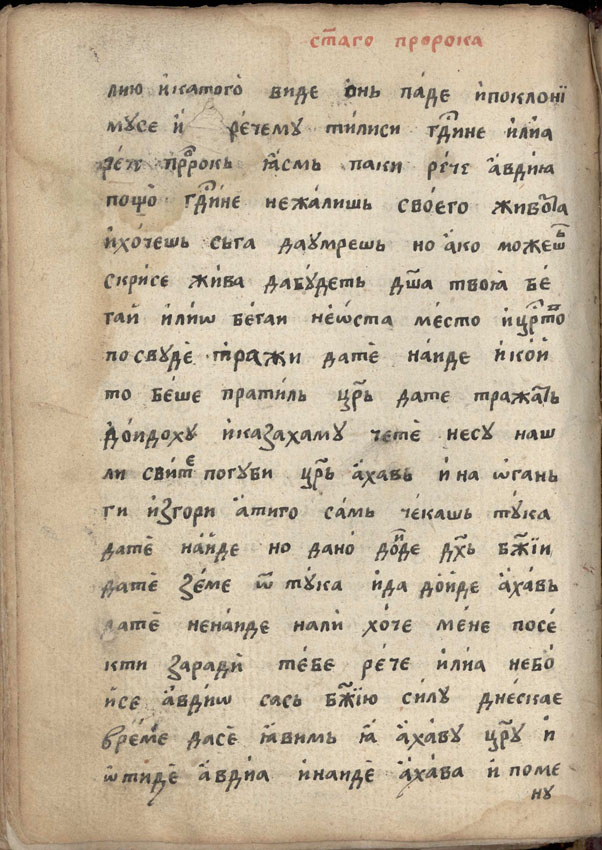 ст҃аго пророка
лию и҆катого̀ виде ѻ҆нь па́де и҆поклонї
мусе и҆ ре́чемꙋ тилиси гд҇ине и҆лиа
ре́че прⷪ҇рокь ꙗ҆смь паки ре́че а҆вдию
пощо̀ гд҇и́не нежа́лишь свое́го живо́та
и҆хо́чешь съга даумрешь но а҆ко можеш
скрисе жи́ва дабꙋ́деть дш҃а твоꙗ бе
гай и҆лиѡ бе́гаи не́ѡста ме́сто и҆црⷭ҇тво
посвꙋдѐ тражи датѐ на́иде и҆кой
то бе́ше прати́ль црⷭ҇ь дате тража́ть
до́идохꙋ и҆каза́хамꙋ че́тѐ несꙋ наш
ли сви́те погꙋби црⷭ҇ь а҆ха́вь и҆на ѡ҆гань
ги и҆згори а҆тиго са́мь че́кашь тꙋ́ка
датѐ на́йде но дано̀ до́иде дх҃ь бж҃їи
датѐ зе́ме ѿ тꙋка и҆да до́йде а҆ха́вь
датѐ нена́иде нали̏ хо́че ме́не посе́
кти зарадѝ те́бе ре́че и҆лиа небо́
и҆се а҆вдиѡ сась бж҃їю си́лꙋ дне́скае
вре́ме дасѐ ꙗ҆вимь ꙗ҆ а҆ха́вꙋ црⷭ҇ꙋ и҆
ѿтидѐ а҆вдиа и҆наидѐ а҆ха́ва и҆ поме
нꙋ